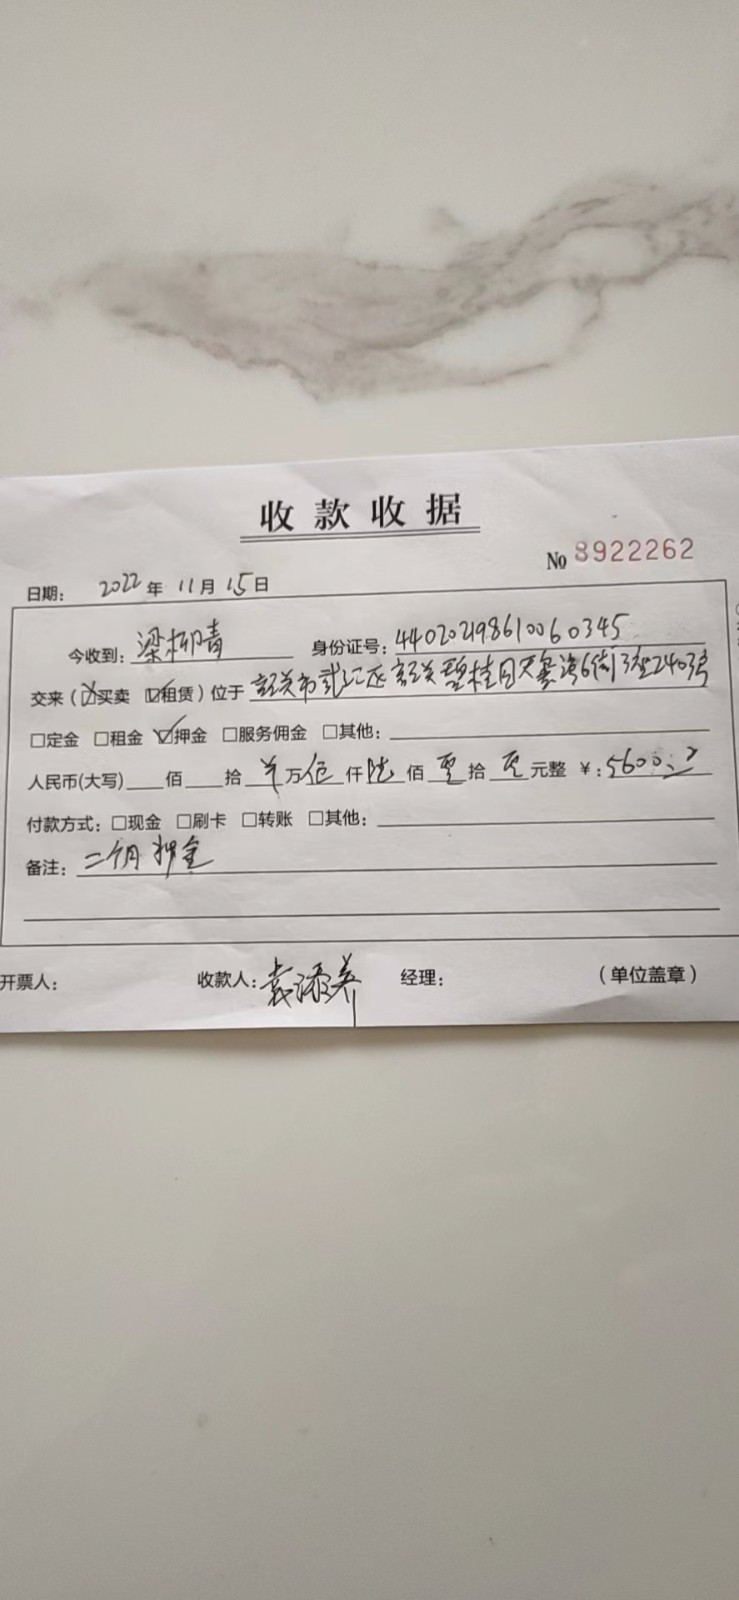 收款收据
No 8922262
日期： 2022年 11月 15日
今收到：梁柳青 身份证号：440202198610060345
交来（☒买卖 ☑租赁）位于 韶关市武江区韶关碧桂园天麓湾6街13座2403号
□定金 □租金 ☑押金 □服务佣金 □其他：
人民币(大写) 佰 拾 万伍仟陆佰零拾零元整 ¥：5600
付款方式：□现金 □刷卡 □转账 □其他：
备注：二个月押金
开票人： 收款人：袁添养 经理： （单位盖章）